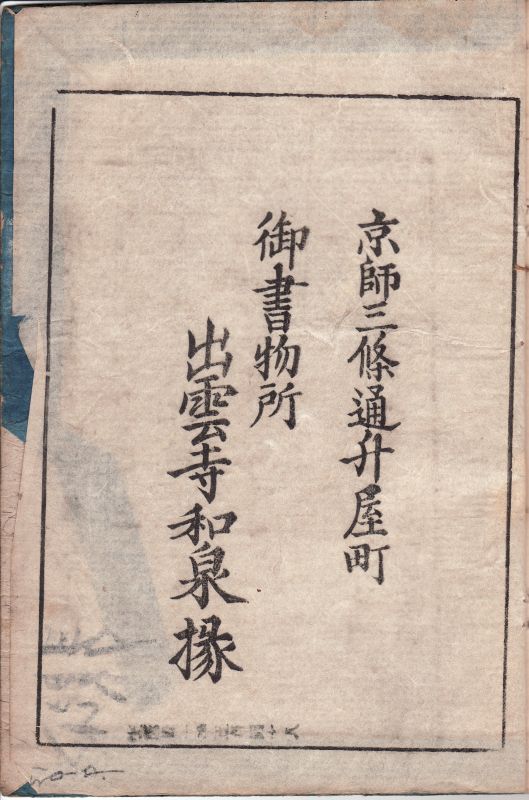 京師三條通升屋町
御書物所
出雲寺和泉掾